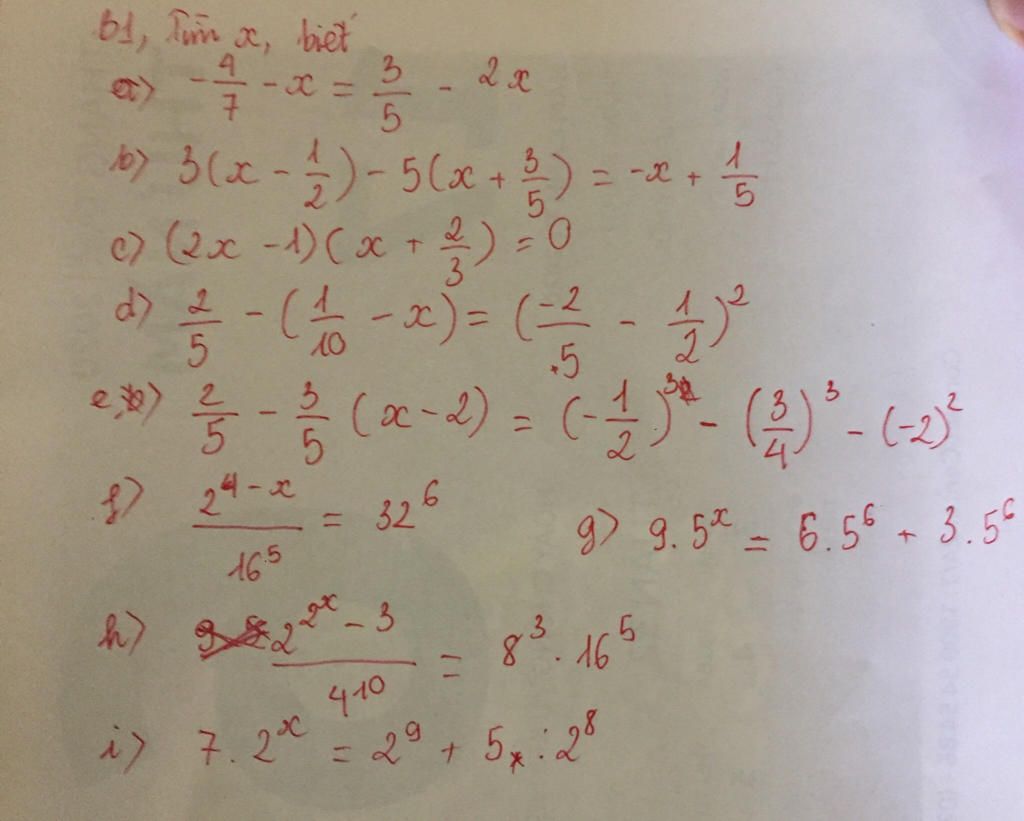 b1, Tìm x, biết
a) -4/7 - x = 3/5 - 2x
b) 3(x - 1/2) - 5(x + 3/5) = -x + 1/5
c) (2x - 1)(x + 2/3) = 0
d) 2/5 - (1/10 - x) = (-2/5 - 1/2)²
e, 2/5 - 3/5 (x - 2) = (-1/2)³ - (3/4)³ - (-2)²
f) 2^(4 - x) / 16⁵ = 32⁶
g) 9.5^x = 6.5⁶ + 3.5⁶
h) 2^(2^x - 3) / 4¹⁰ = 8³ . 16⁵
i) 7. 2^x = 2⁹ + 5 : 2⁸